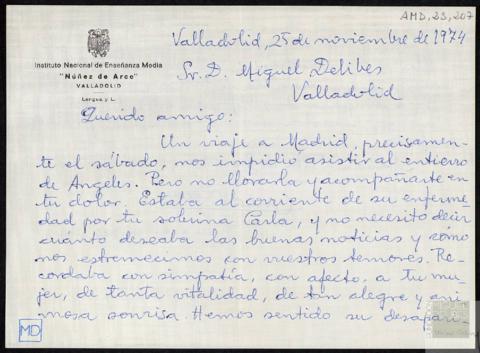 AMD,23,207
Valladolid, 25 de noviembre de 1974
Instituto Nacional de Enseñanza Media
"Núñez de Arce"
VALLADOLID
Lengua y L.
Sr. D. Miguel Delibes
Valladolid
Querido amigo:
Un viaje a Madrid, precisamen-
te el sábado, nos impidió asistir al entierro
de Angeles. Pero no llorarla y acompañarte en
tu dolor. Estaba al corriente de su enferme
dad por tu sobrina Carla, y no necesito decir
cuánto deseaba las buenas noticias y cómo
nos estremecimos con vuestros temores. Re-
cordaba con simpatía, con afecto, a tu mu-
jer, de tanta vitalidad, de tan alegre y ani
mosa sonrisa. Hemos sentido su desapari-
MD